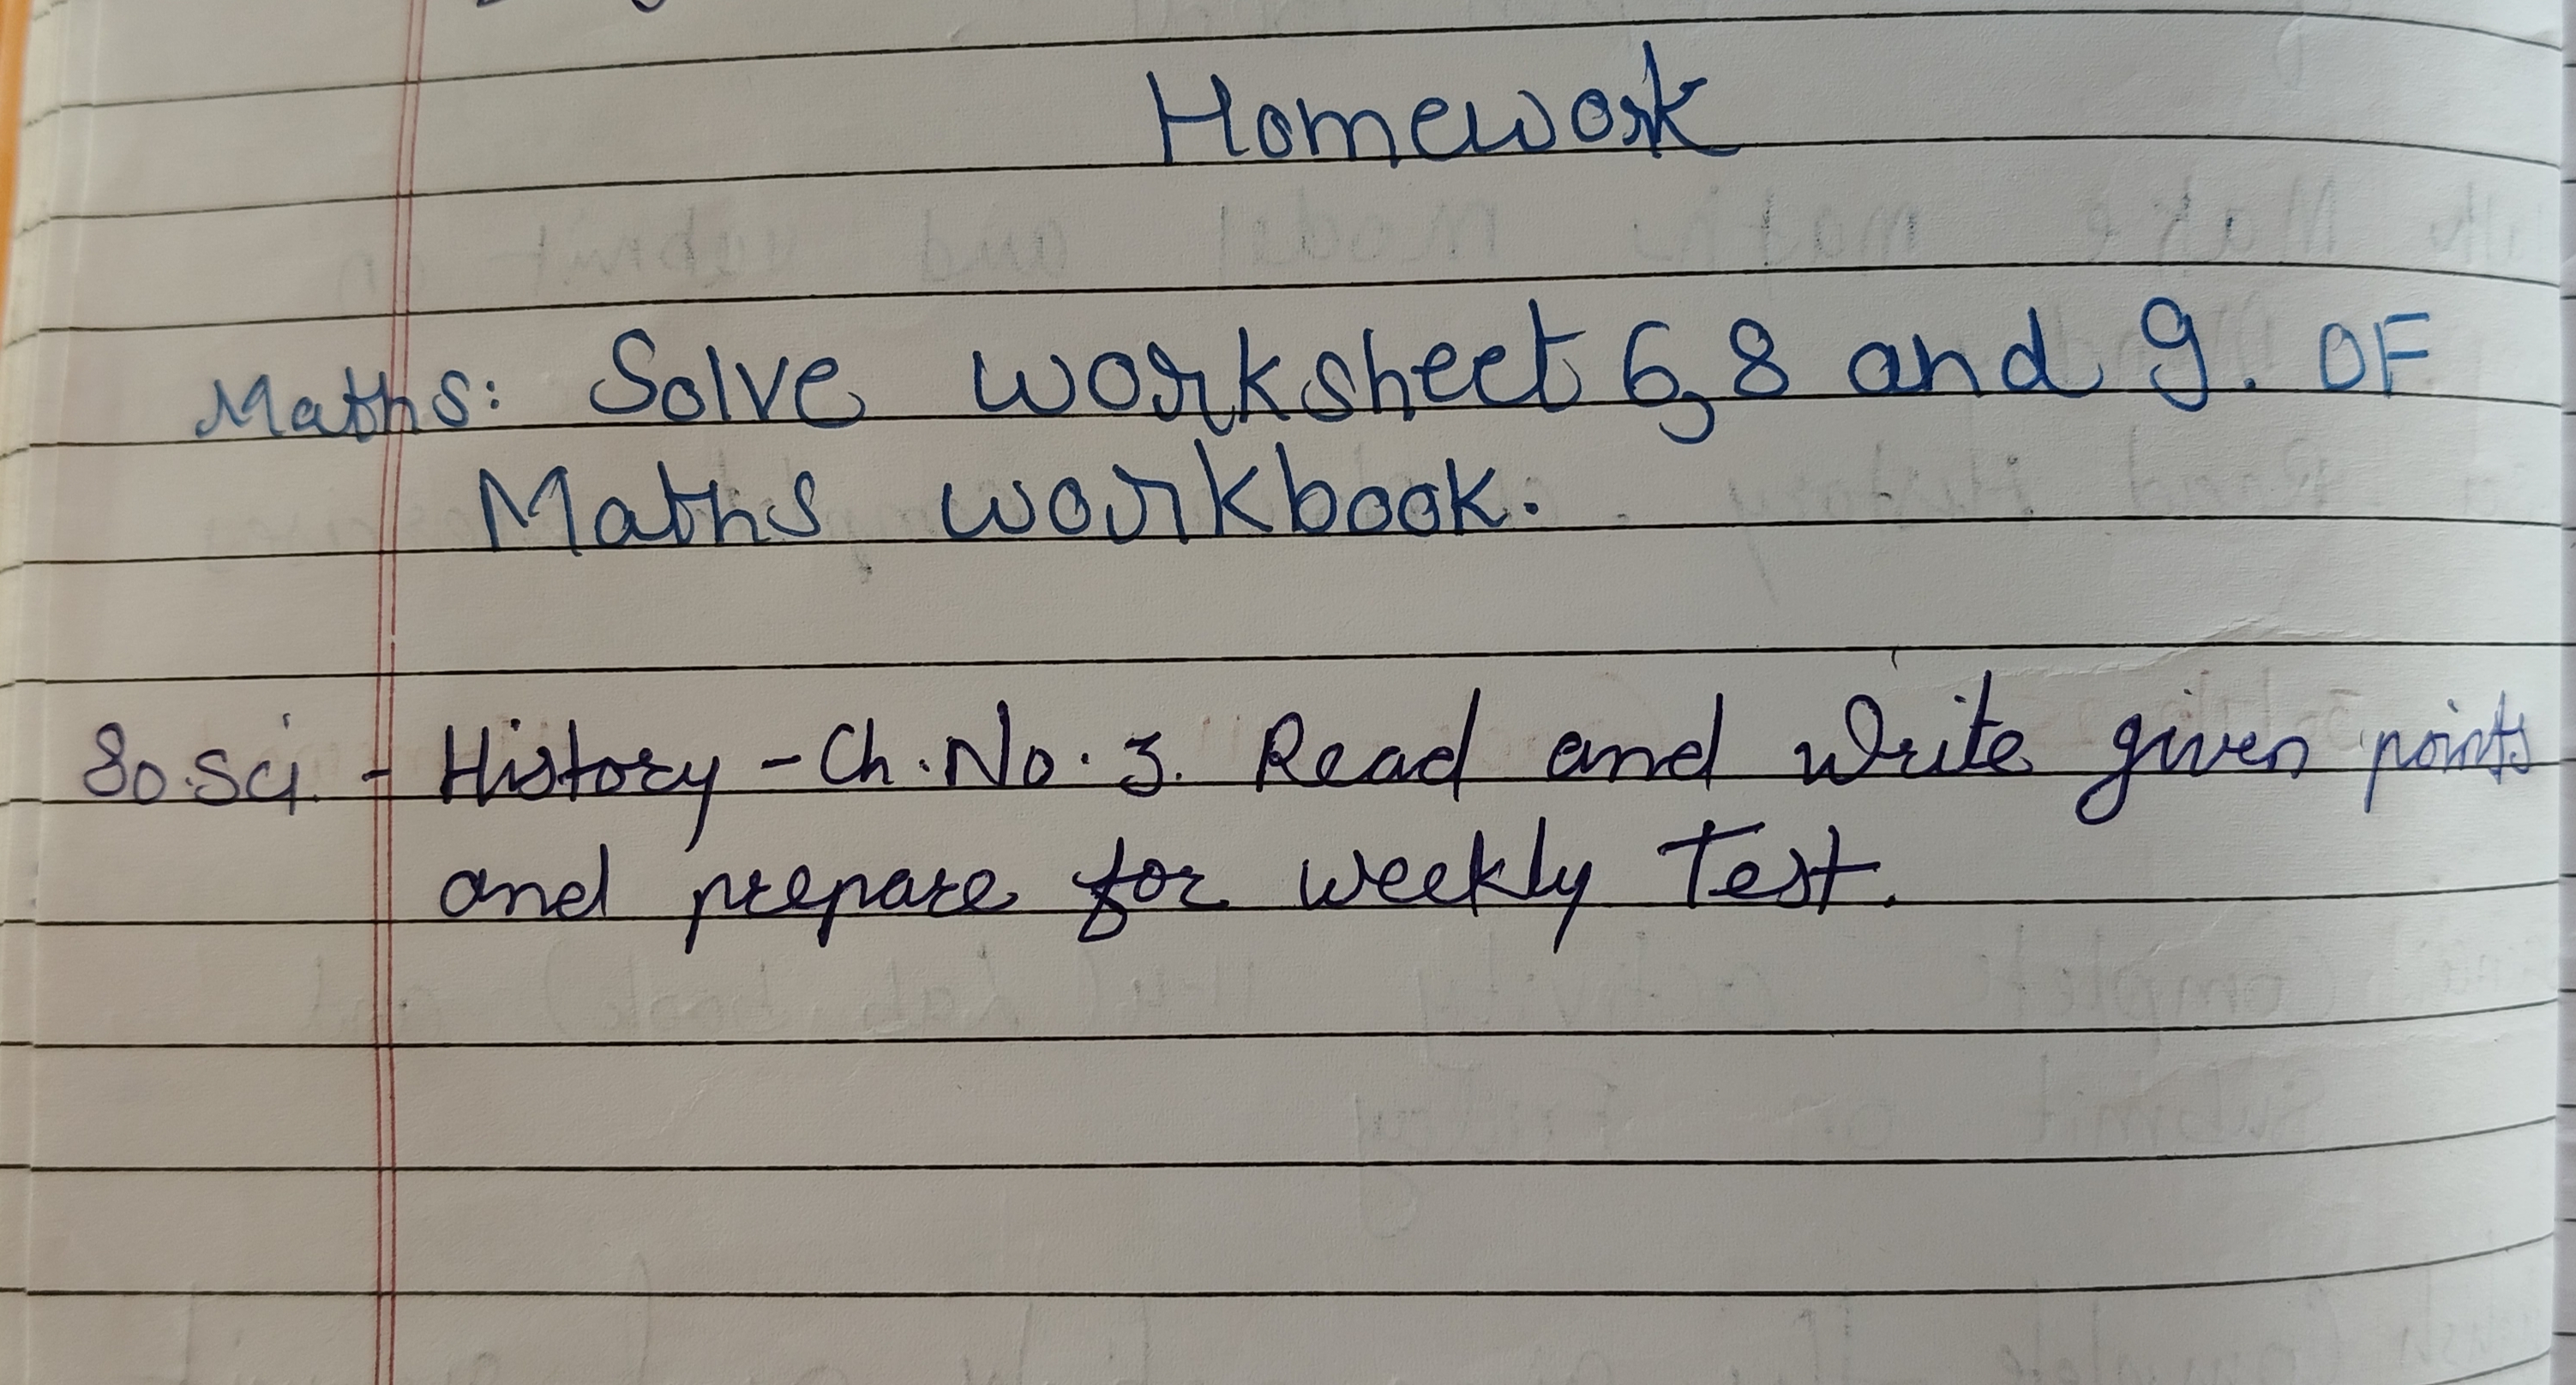 Homework
Maths: Solve worksheet 6, 8 and 9. OF
Maths workbook.
So.Sci. - History - Ch. No. 3. Read and Write given points
and prepare for weekly Test.